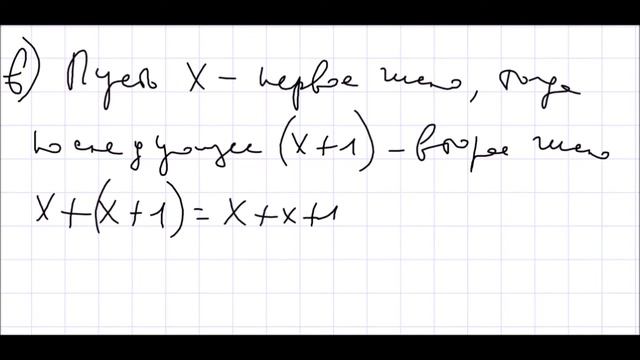 в) Пусть X – первое число, тогда
последующее (X+1) – второе число
X+(X+1)=X+x+1